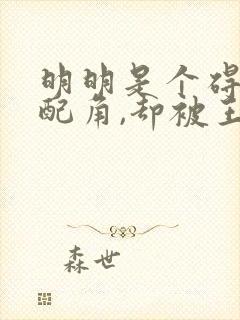 明明是个碍
配角,却被主
森世